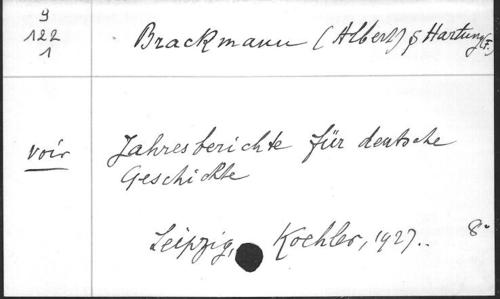 9
122
1
Brackmann (Albert) & Hartung (F.)
voir
Jahresberichte für deutsche
Geschichte
Leipzig, Koehler, 1927.. 8°